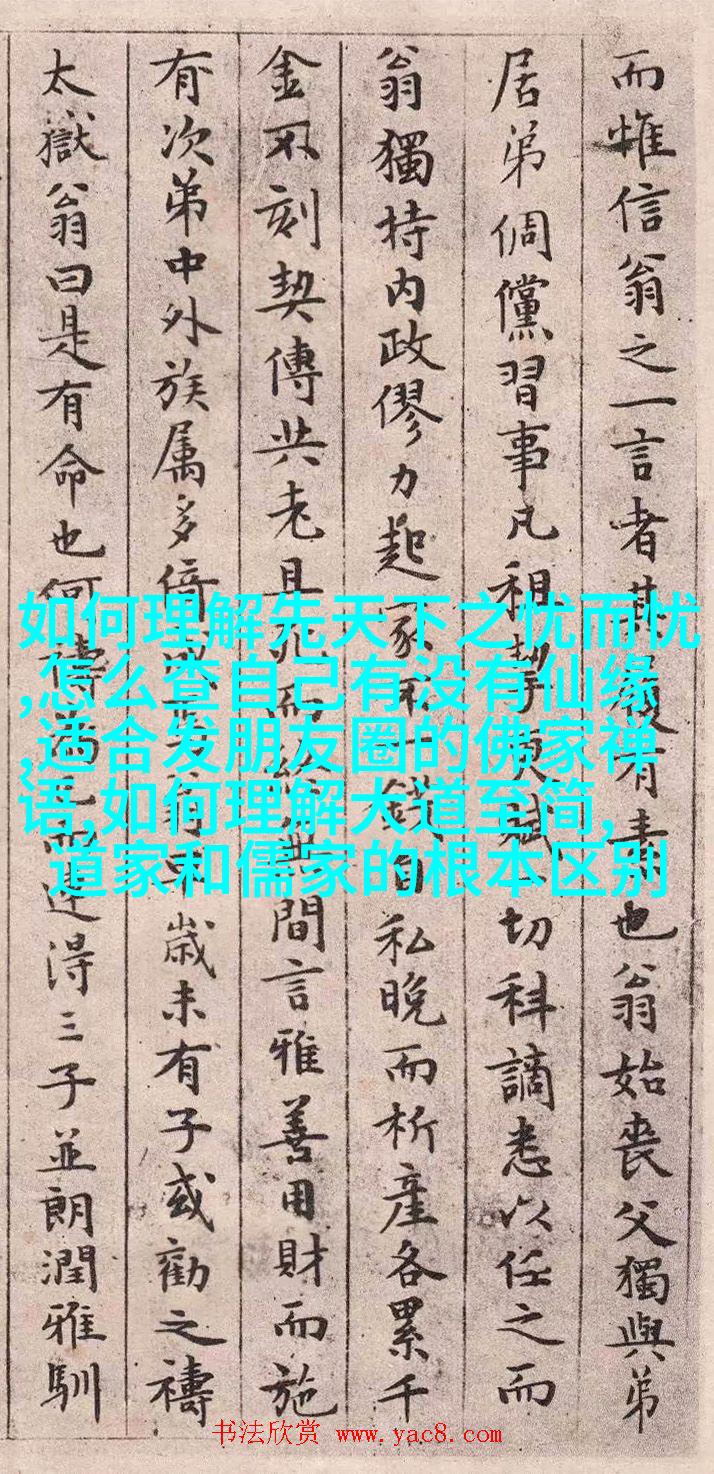 而惟信翁之一言者其有素也翁始喪父獨與弟
居弟倜儻習事凡租挈更賦一切科謫悉以任之而
翁獨持内政僇力起家不一錢自私晚而析產各累千
金不刻契傳共老且死而終無間言雅善用財而施
有次弟中外族属多倚歲未有子或勸之禱
太嶽翁曰是有命也何禱為已而連得三子並朗潤雅馴
如何理解先天下之忧而忧
,怎么查自己有没有仙缘
,适合发朋友圈的佛家禅
语,如何理解大道至简,
道家和儒家的根本区别
书法欣赏 www.yac8.com